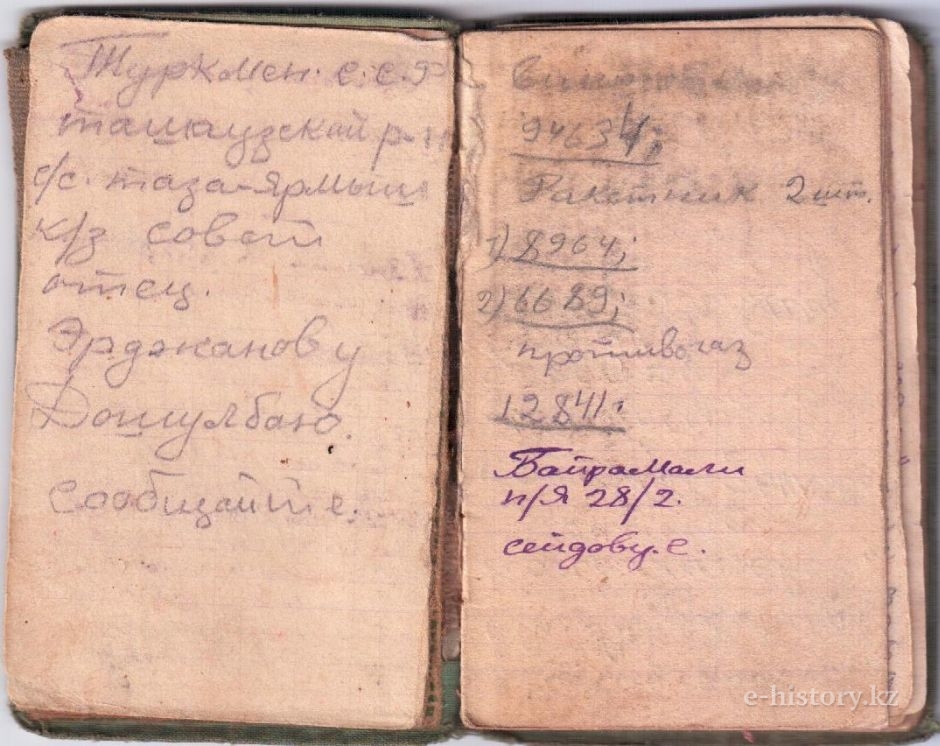 Туркмен. с.с.р
ташаузский р-н
с/с. таза-Ярмыш
к/з совет
отец.
Эрджанову
Дошулбаю.
сообщайте.
94634;
Ракетник 2 шт.
1) 8964;
2) 6689;
противогаз
12841.
Байрамали
п/я 28/2.
сеидову. с.
e-history.kz